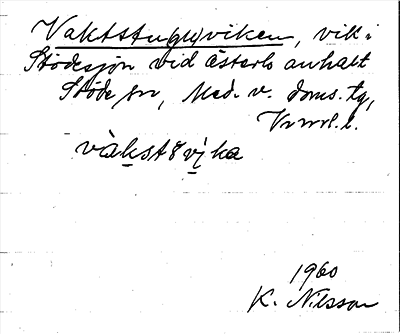 Vaktstuguviken, vik i
Stödesjön vid Österlo anhalt
Stöde sn, Med. v. doms. tg,
Vnrrl. l.
vàkstɜvi̭ka
1960
K. Nilsson